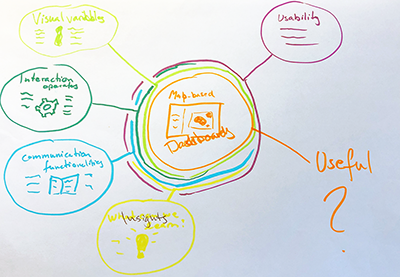 Visual variables
Usability
Interaction
operators
Map-based
Dashboards
Communication
functionalities
Useful
?
Insights